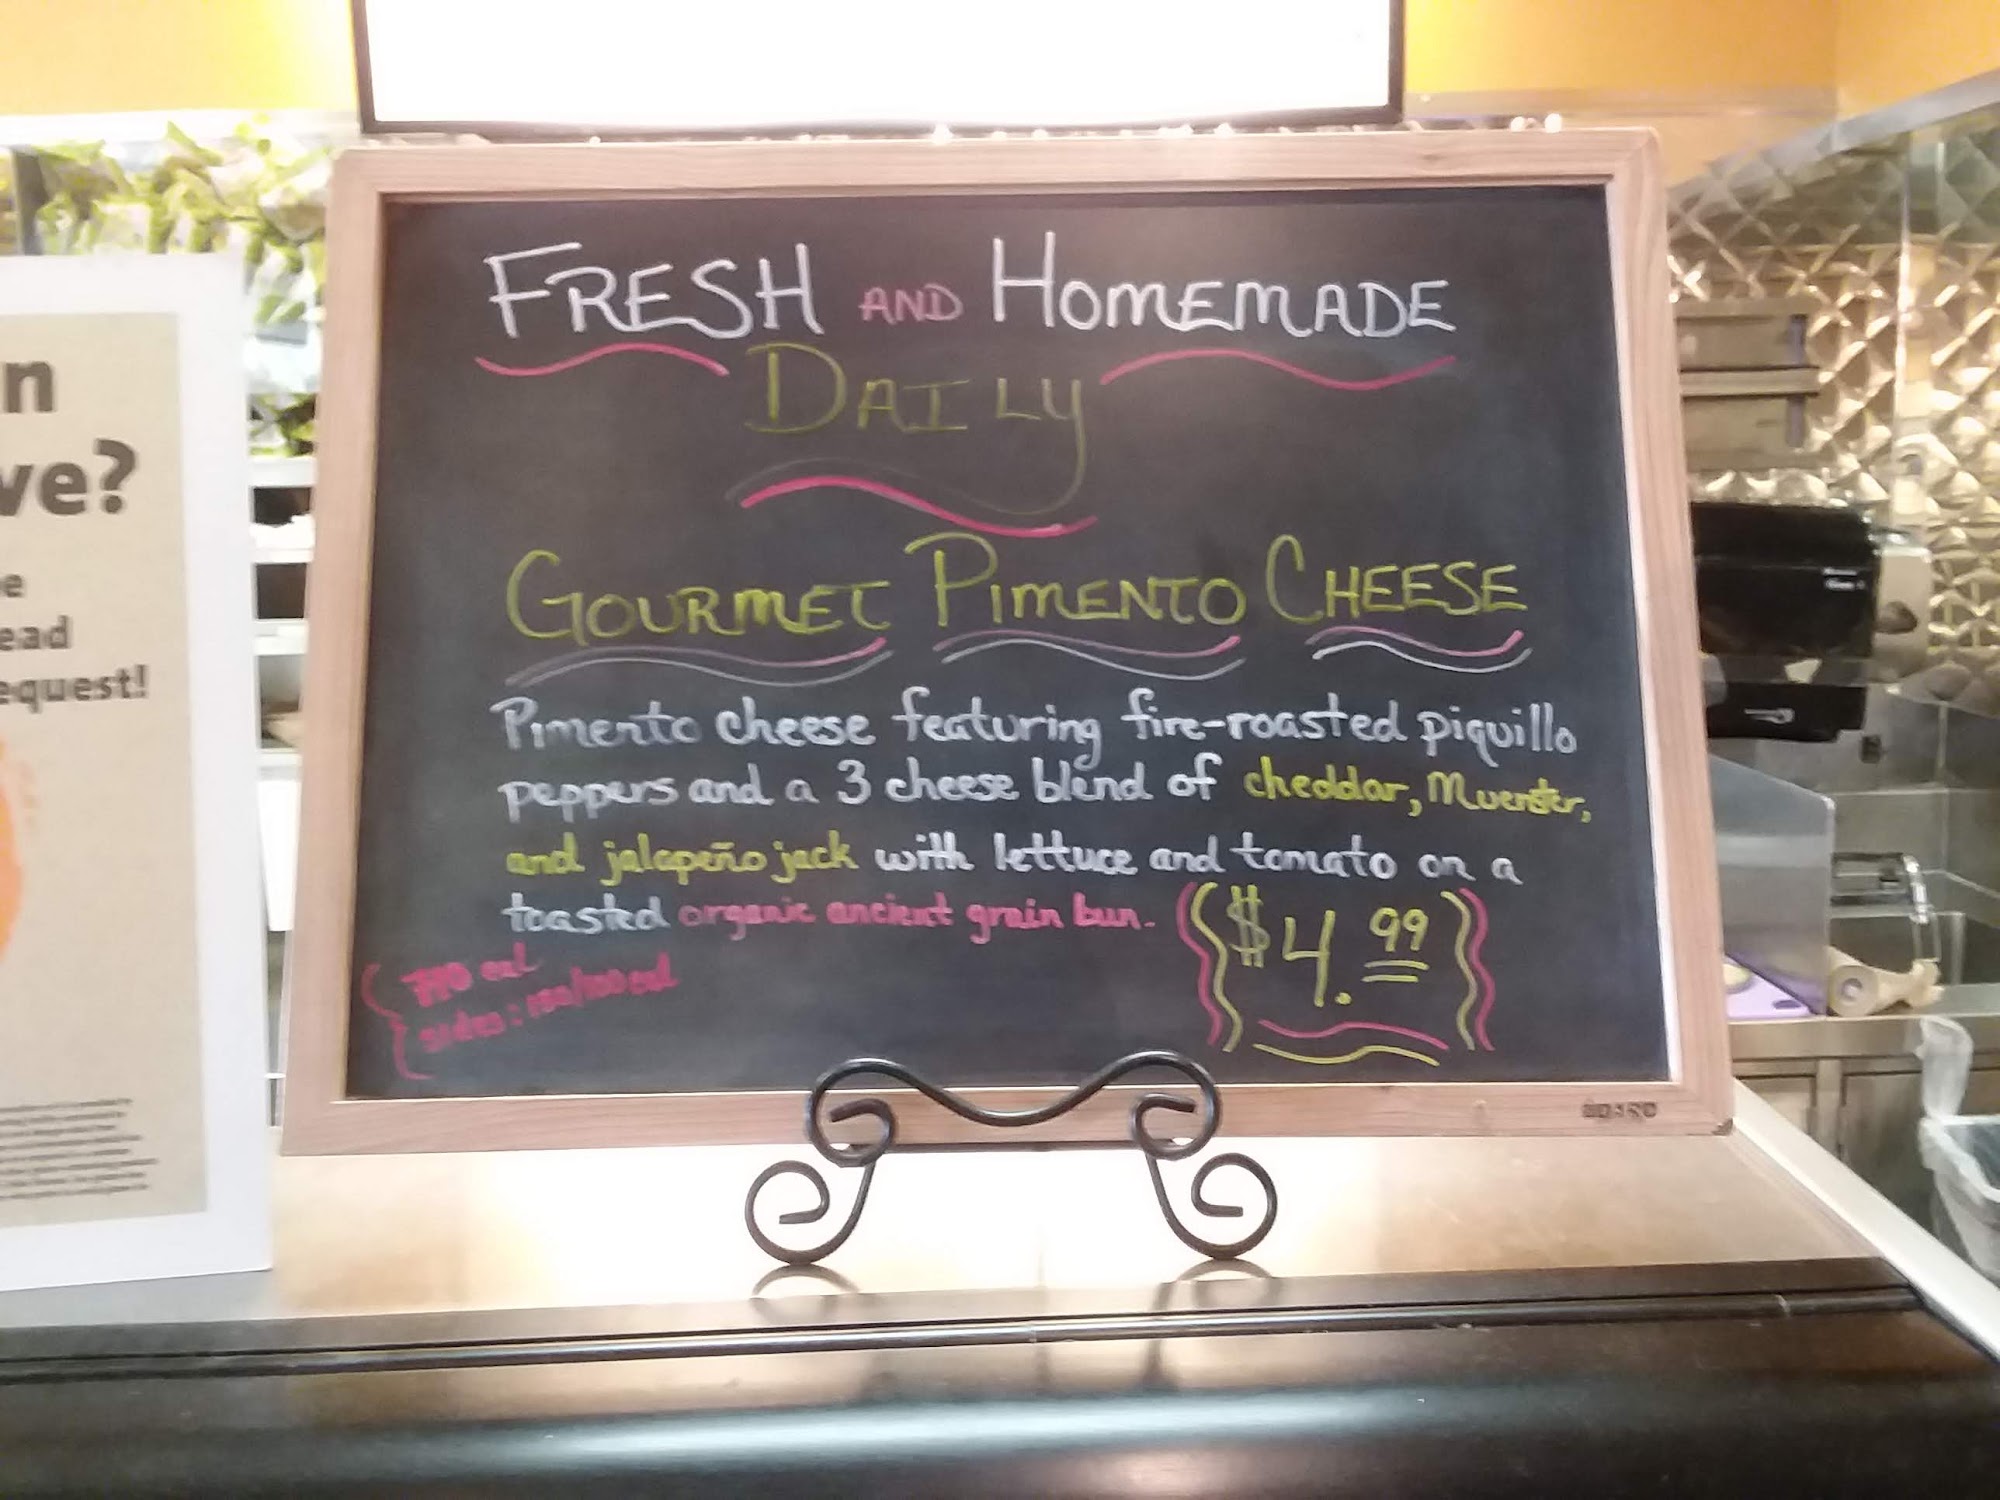 FRESH AND HOMEMADE
DAILY
GOURMET PIMENTO CHEESE
Pimento cheese featuring fire-roasted piquillo
peppers and a 3 cheese blend of cheddar, Muenster,
and jalapeño jack with lettuce and tomato on a
toasted organic ancient grain bun.
$4.99
cal
sides: cal
n
ve?
e
ead
equest!